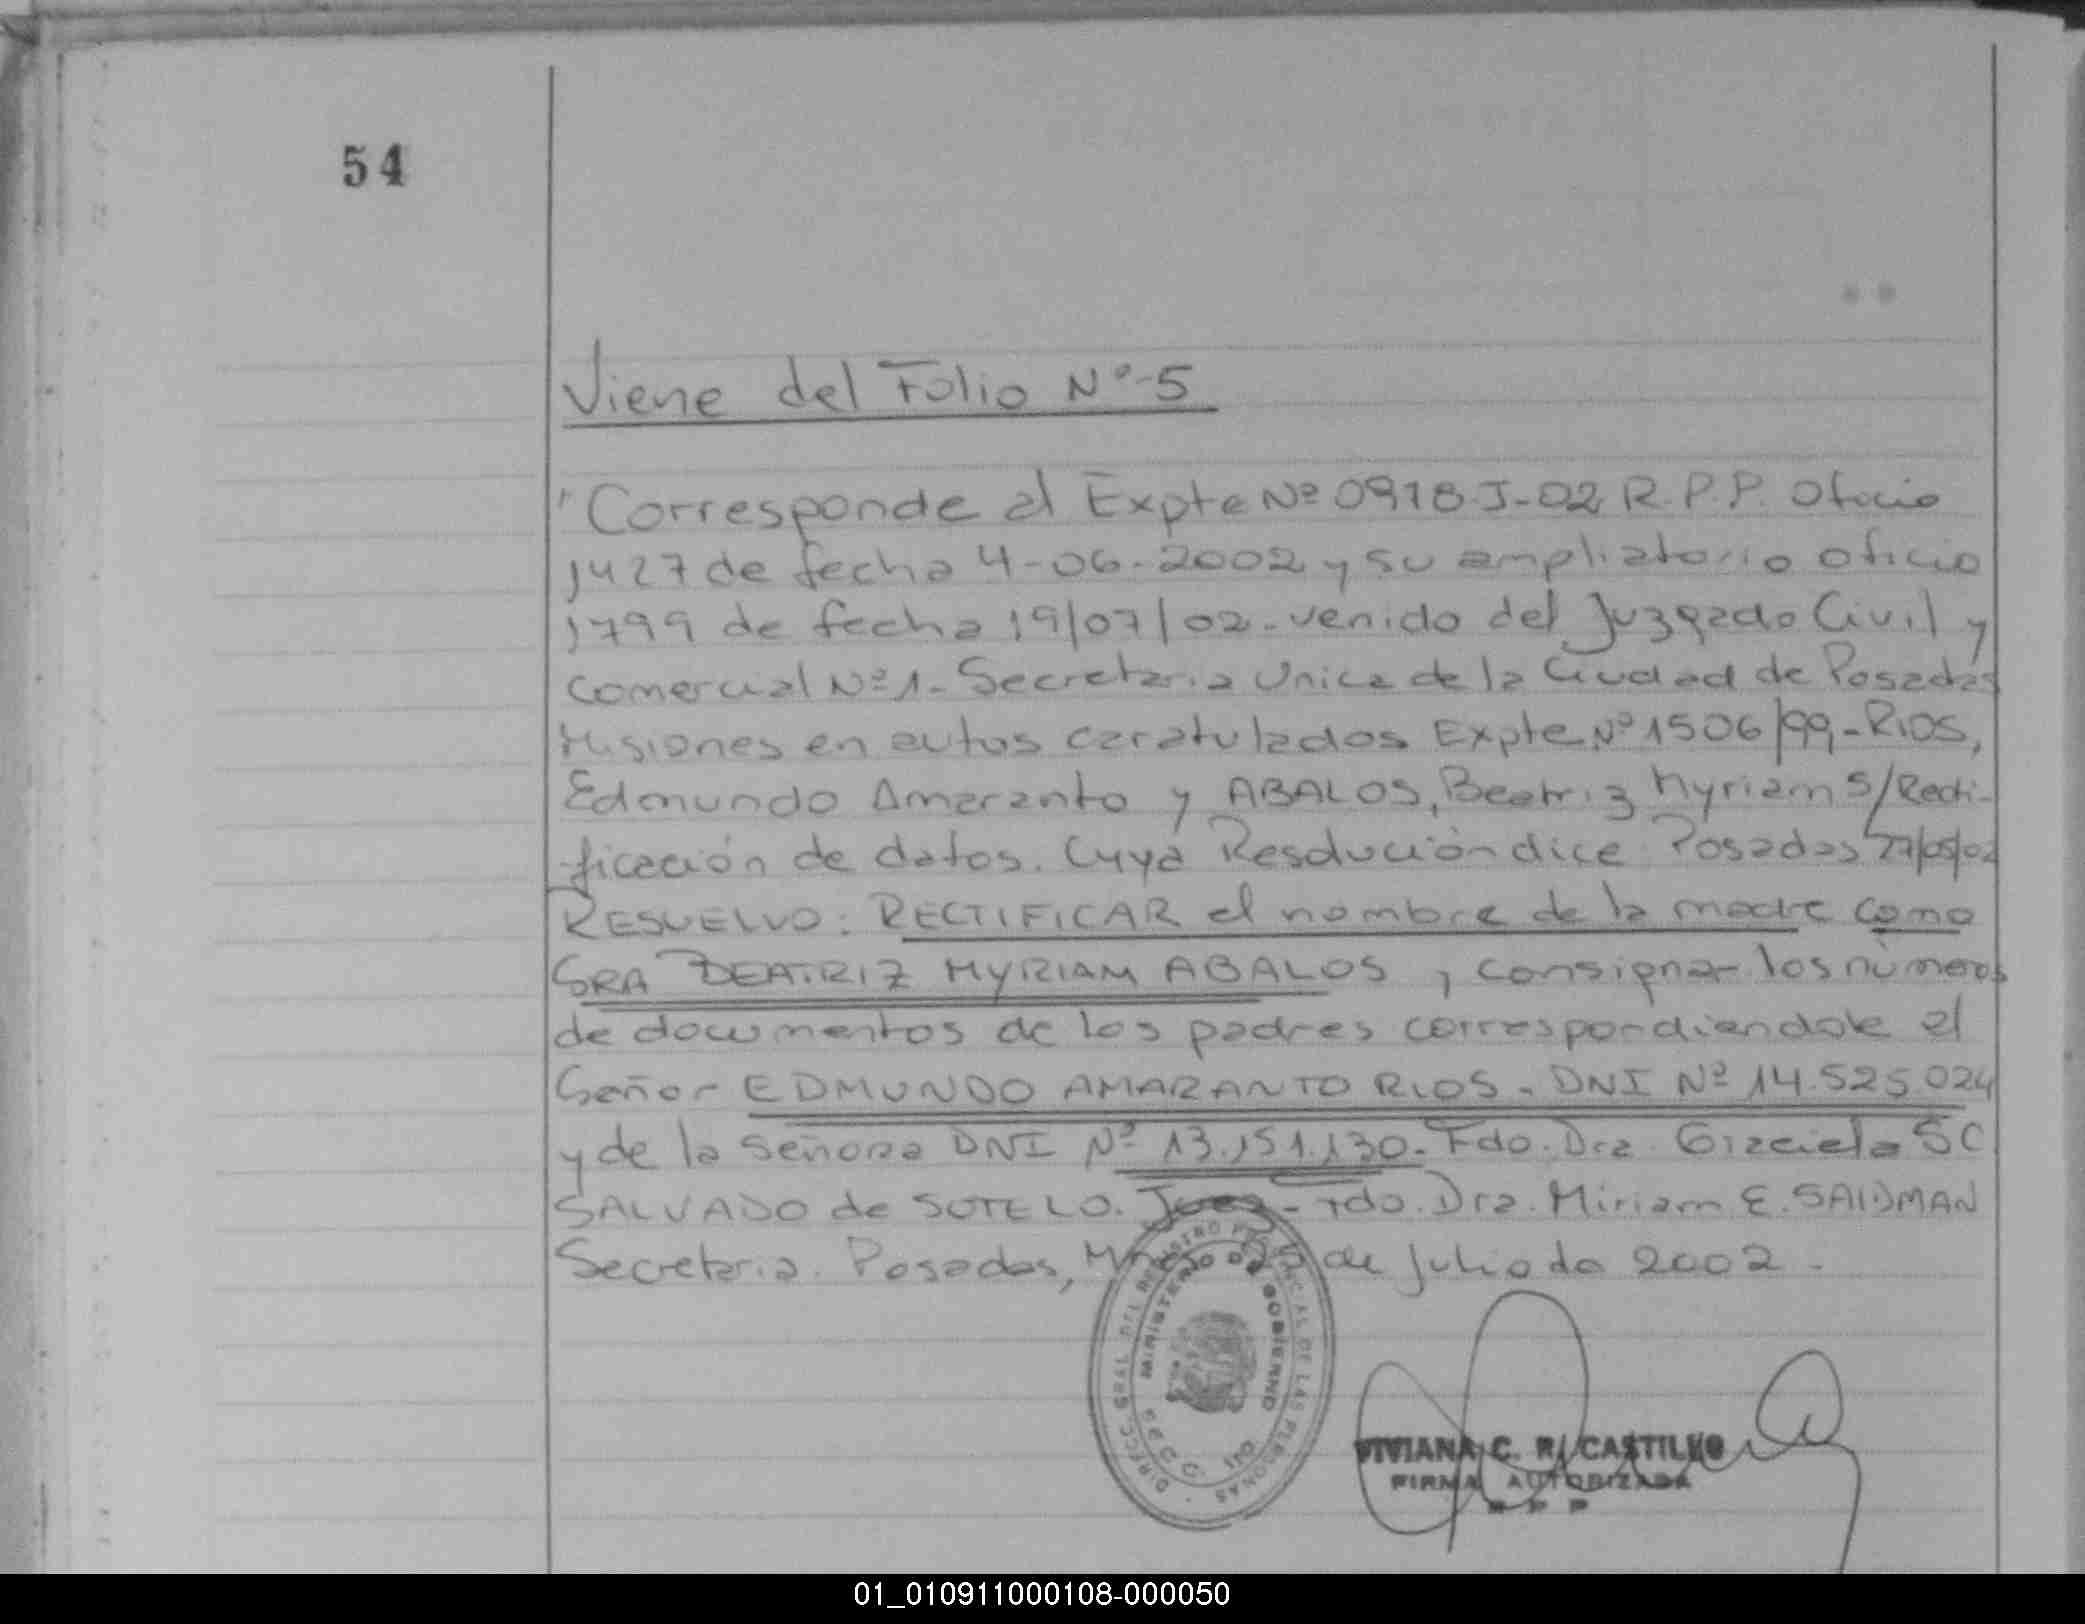 54
Viene del Folio Nº-5
"Corresponde al Expte Nº 0918-J-02 R.P.P. Oficio
1427 de fecha 4-06-2002 y su ampliatorio oficio
1799 de fecha 19/07/02-venido del Juzgado Civil y
Comercial Nº1- Secretaria Unica de la Ciudad de Posadas
Misiones en autos caratulados Expte Nº 1506/99,-RIOS,
Edmundo Amaranto y ABALOS, Beatriz Myriam S/Recti-
ficación de datos. Cuya Resolución dice: Posadas 27/05/02
RESUELVO: RECTIFICAR el nombre de la madre como
SRA BEATRIZ MYRIAM ABALOS, consignar los números
de documentos de los padres correspondiendole el
Señor EDMUNDO AMARANTO RIOS - DNI Nº 14.525.024
y de la Señora DNI Nº 13.151.130- Fdo. Dra. Graciela SC
SALVADO de SOTELO. Juez- Fdo. Dra. Miriam E. SAIDMAN
Secretaria. Posadas, de Julio de 2002-
DIRECC. GRAL DEL REGISTRO PROVINCIAL DE LAS PERSONAS
MINISTERIO DE GOBIERNO
VIVIANA C. R. CASTILLO
FIRMA AUTORIZADA
R P P
01_010911000108-000050